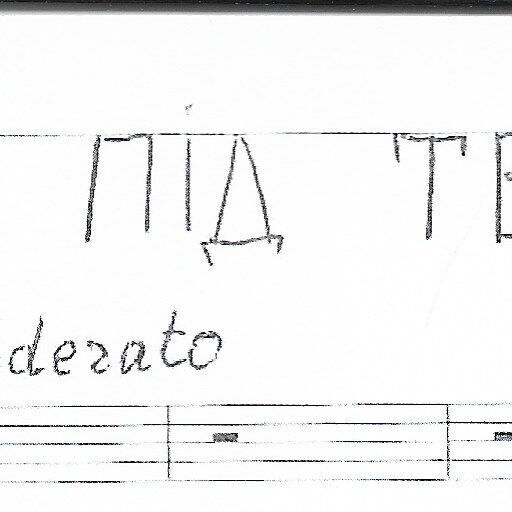 ПІД Т
derato